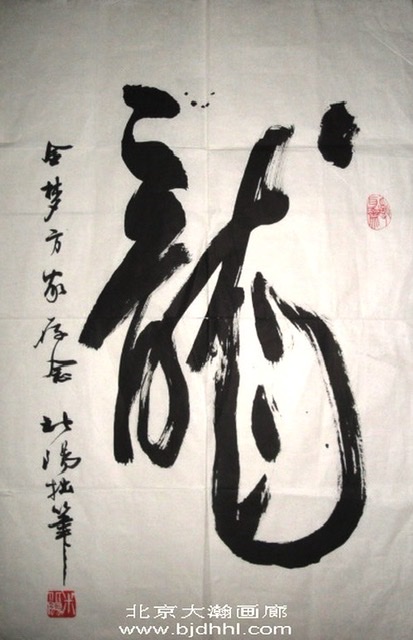 龍
梦方家存念 北陽拙筆
北京大瀚画廊
www.bjdhhl.com